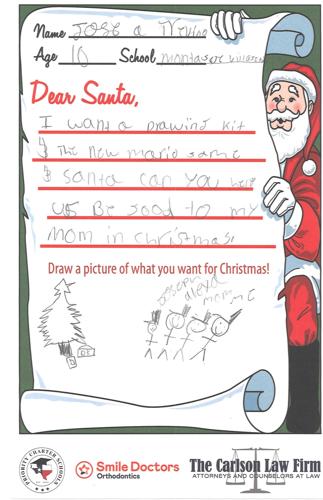 Name Jose a
Age 10 School
Dear Santa,
I want a Drawing kit
$ The new mario game
$ Santa can you help
us Be good to my
Mom in Christmas!
Draw a picture of what you want for Christmas!
Joseph
alexa
PRIORITY CHARTER SCHOOLS
Smile Doctors
Orthodontics
The Carlson Law Firm
ATTORNEYS AND COUNSELORS AT LAW